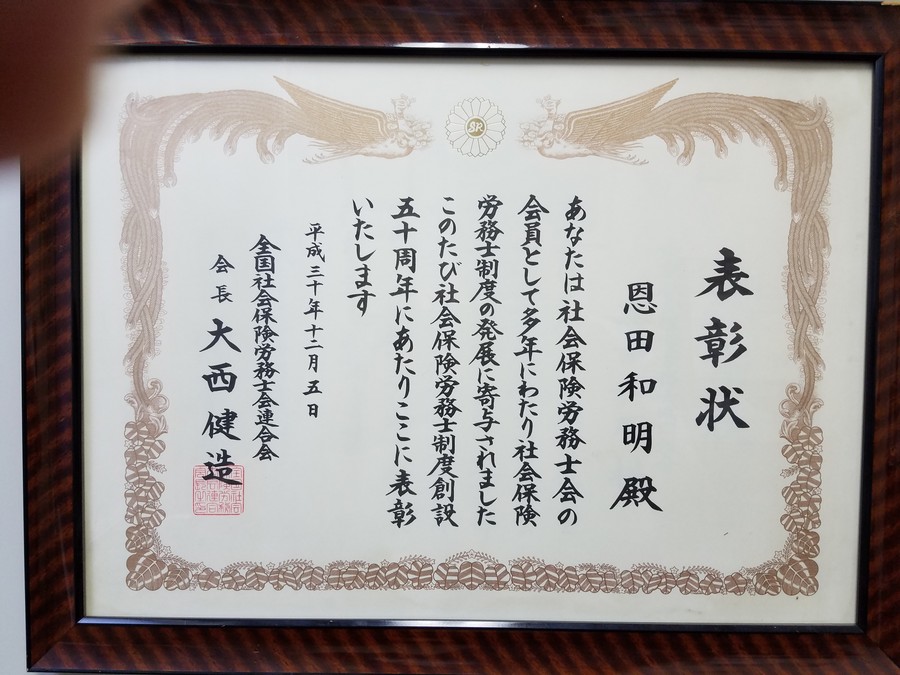 SR
表彰状
恩田和明殿
あなたは社会保険労務士会の
会員として多年にわたり社会保険
労務士制度の発展に寄与されました
このたび社会保険労務士制度創設
五十周年にあたりここに表彰
いたします
平成三十年十二月五日
全国社会保険労務士会連合会
会長 大西健造